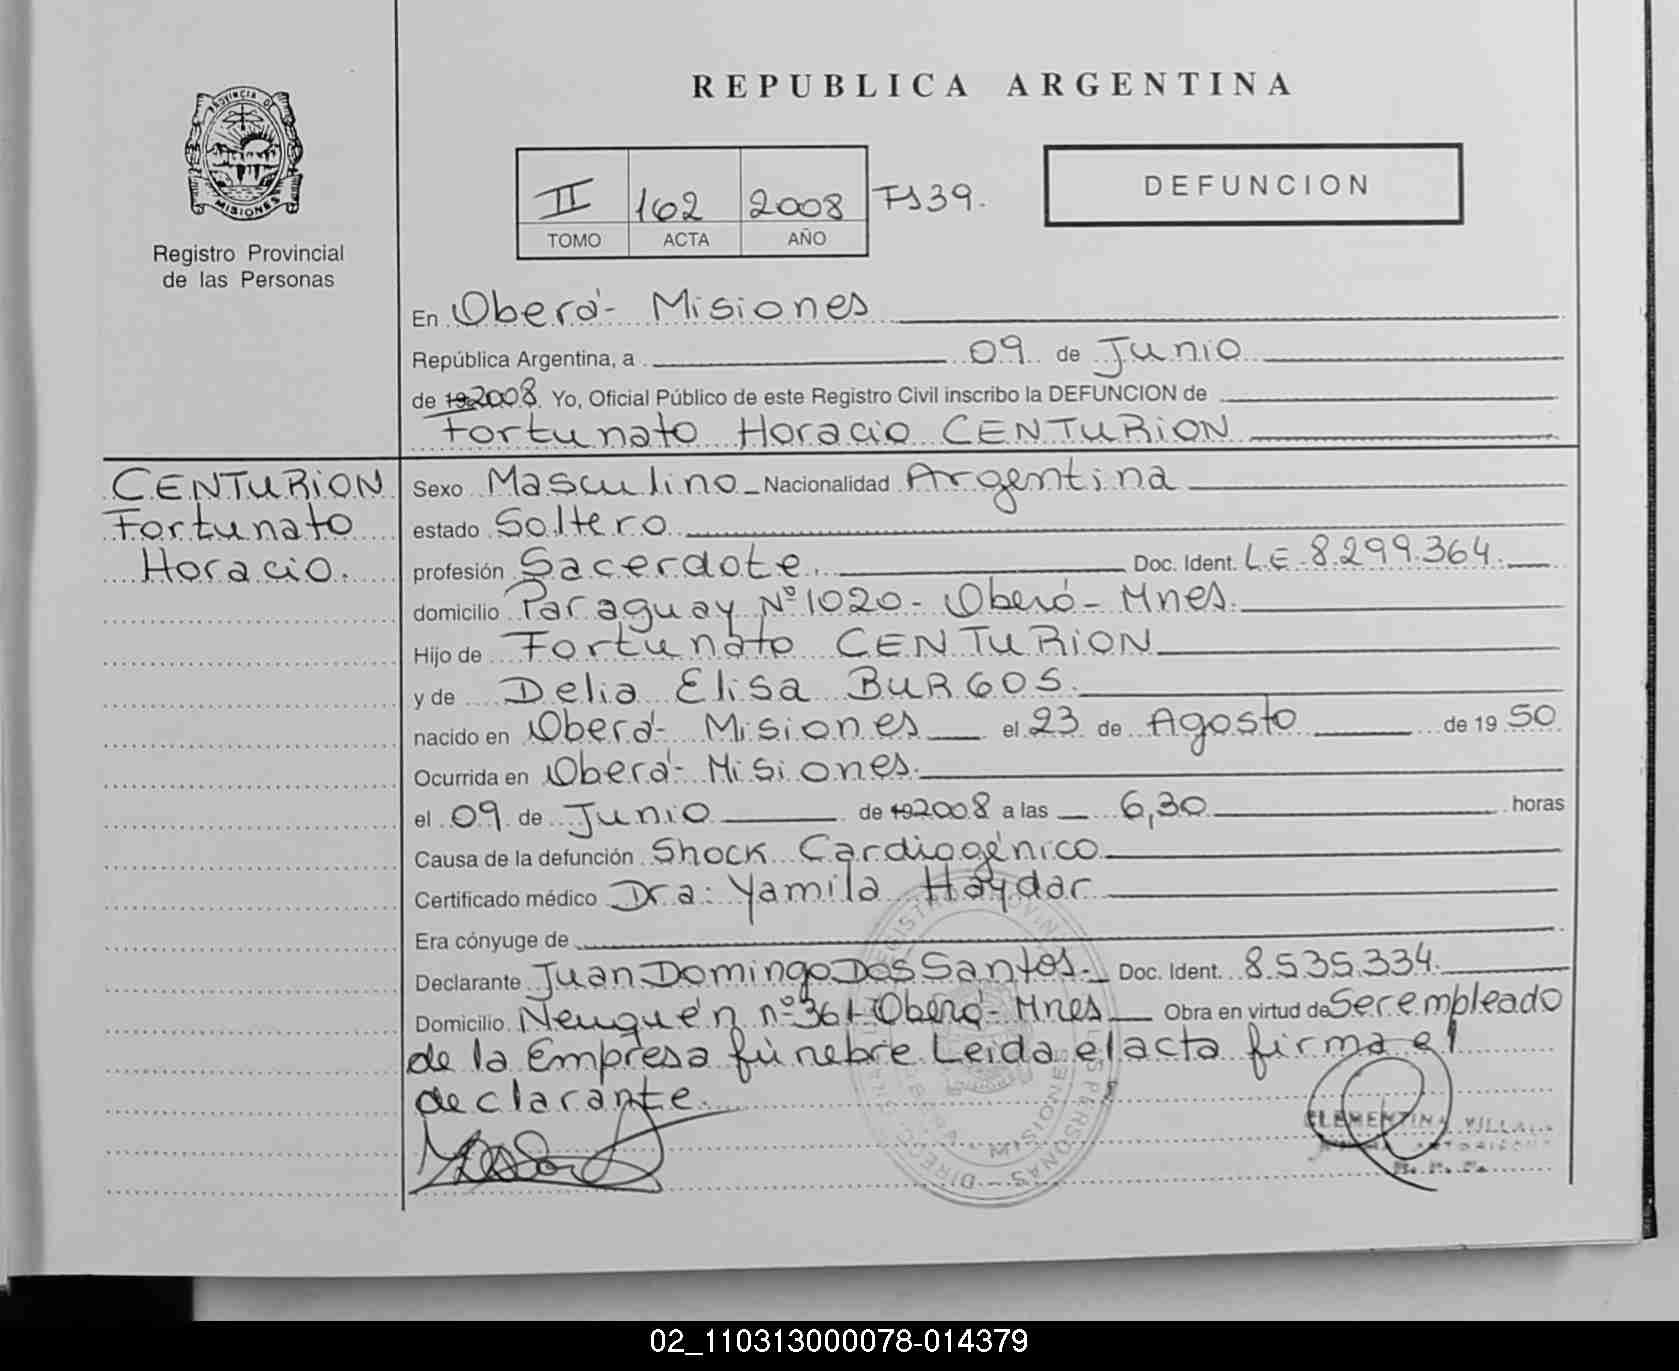 REPUBLICA ARGENTINA
PROVINCIA DE
MISIONES
Registro Provincial
de las Personas
II 162 2008 Fs 39.
TOMO ACTA AÑO
DEFUNCION
En Oberá- Misiones
República Argentina, a 09 de Junio
de 19 2008 Yo, Oficial Público de este Registro Civil inscribo la DEFUNCION de
Fortunato Horacio CENTURION
CENTURION
Fortunato
Horacio.
Sexo Masculino Nacionalidad Argentina
estado Soltero
profesión Sacerdote. Doc. Ident. LE 8.299.364.
domicilio Paraguay Nº 1020 - Oberá - Mnes.
Hijo de Fortunato CENTURION
y de Delia Elisa BURGOS.
nacido en Oberá- Misiones el 23 de Agosto de 19 50
Ocurrida en Oberá- Misiones.
el 09 de Junio de 19 2008 a las 6,30 horas
Causa de la defunción Shock Cardiogénico
Certificado médico Dra: Yamila Haydar
Era cónyuge de
Declarante Juan Domingo Dos Santos. Doc. Ident. 8.535.334.
Domicilio Neuquén nº 361- Oberá- Mnes Obra en virtud de Ser empleado
de la Empresa fúnebre Leida el acta firma el
declarante.
CLEMENTINA VILLA
02_110313000078-014379